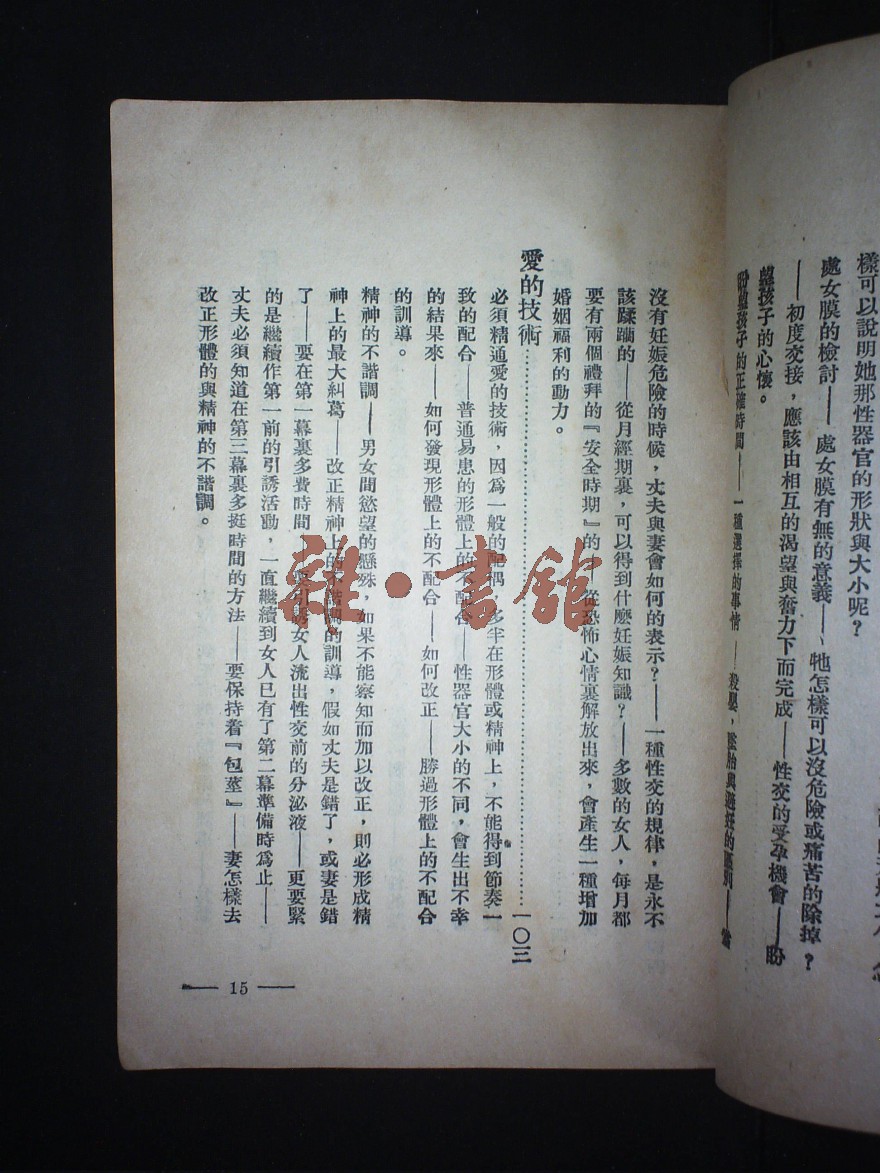 樣可以說明她那性器官的形狀與大小呢?
處女膜的檢討——處女膜有無的意義——牠怎樣可以沒危險或痛苦的除掉?
——初度交接,應該由相互的渴望與奮力下而完成——性交的受孕機會——盼
孩子的心懷。
孩子的正確時間——一種選擇的事情——殺嬰,墮胎與避妊的區別——當
沒有妊娠危險的時候,丈夫與妻會如何的表示?——一種性交的規律,是永不
該蹂躪的——從月經期裏,可以得到什麼妊娠知識?——多數的女人,每月都
要有兩個禮拜的『安全時期』的——從恐怖心情裏解放出來,會產生一種增加
婚姻福利的動力。
愛的技術……………………一〇三
必須精通愛的技術,因爲一般的配耦,多半在形體或精神上,不能得到節奏一
致的配合——普通易患的形體上的不配合——性器官大小的不同,會生出不幸
的結果來——如何發現形體上的不配合——如何改正——勝過形體上的不配合
的訓導。
精神的不諧調——男女間慾望的懸殊,如果不能察知而加以改正,則必形成精
神上的最大糾葛——改正精神上的不諧調的訓導,假如丈夫是錯了,或妻是錯
了——要在第一幕裏多費時間,要引誘女人流出性交前的分泌液——更要緊
的是繼續作第一前的引誘活動,一直繼續到女人已有了第二幕準備時爲止——
丈夫必須知道在第三幕裏多挺時間的方法——要保持着『包莖』——妻怎樣去
改正形體的與精神的不諧調。
— 15 —
雜·書館